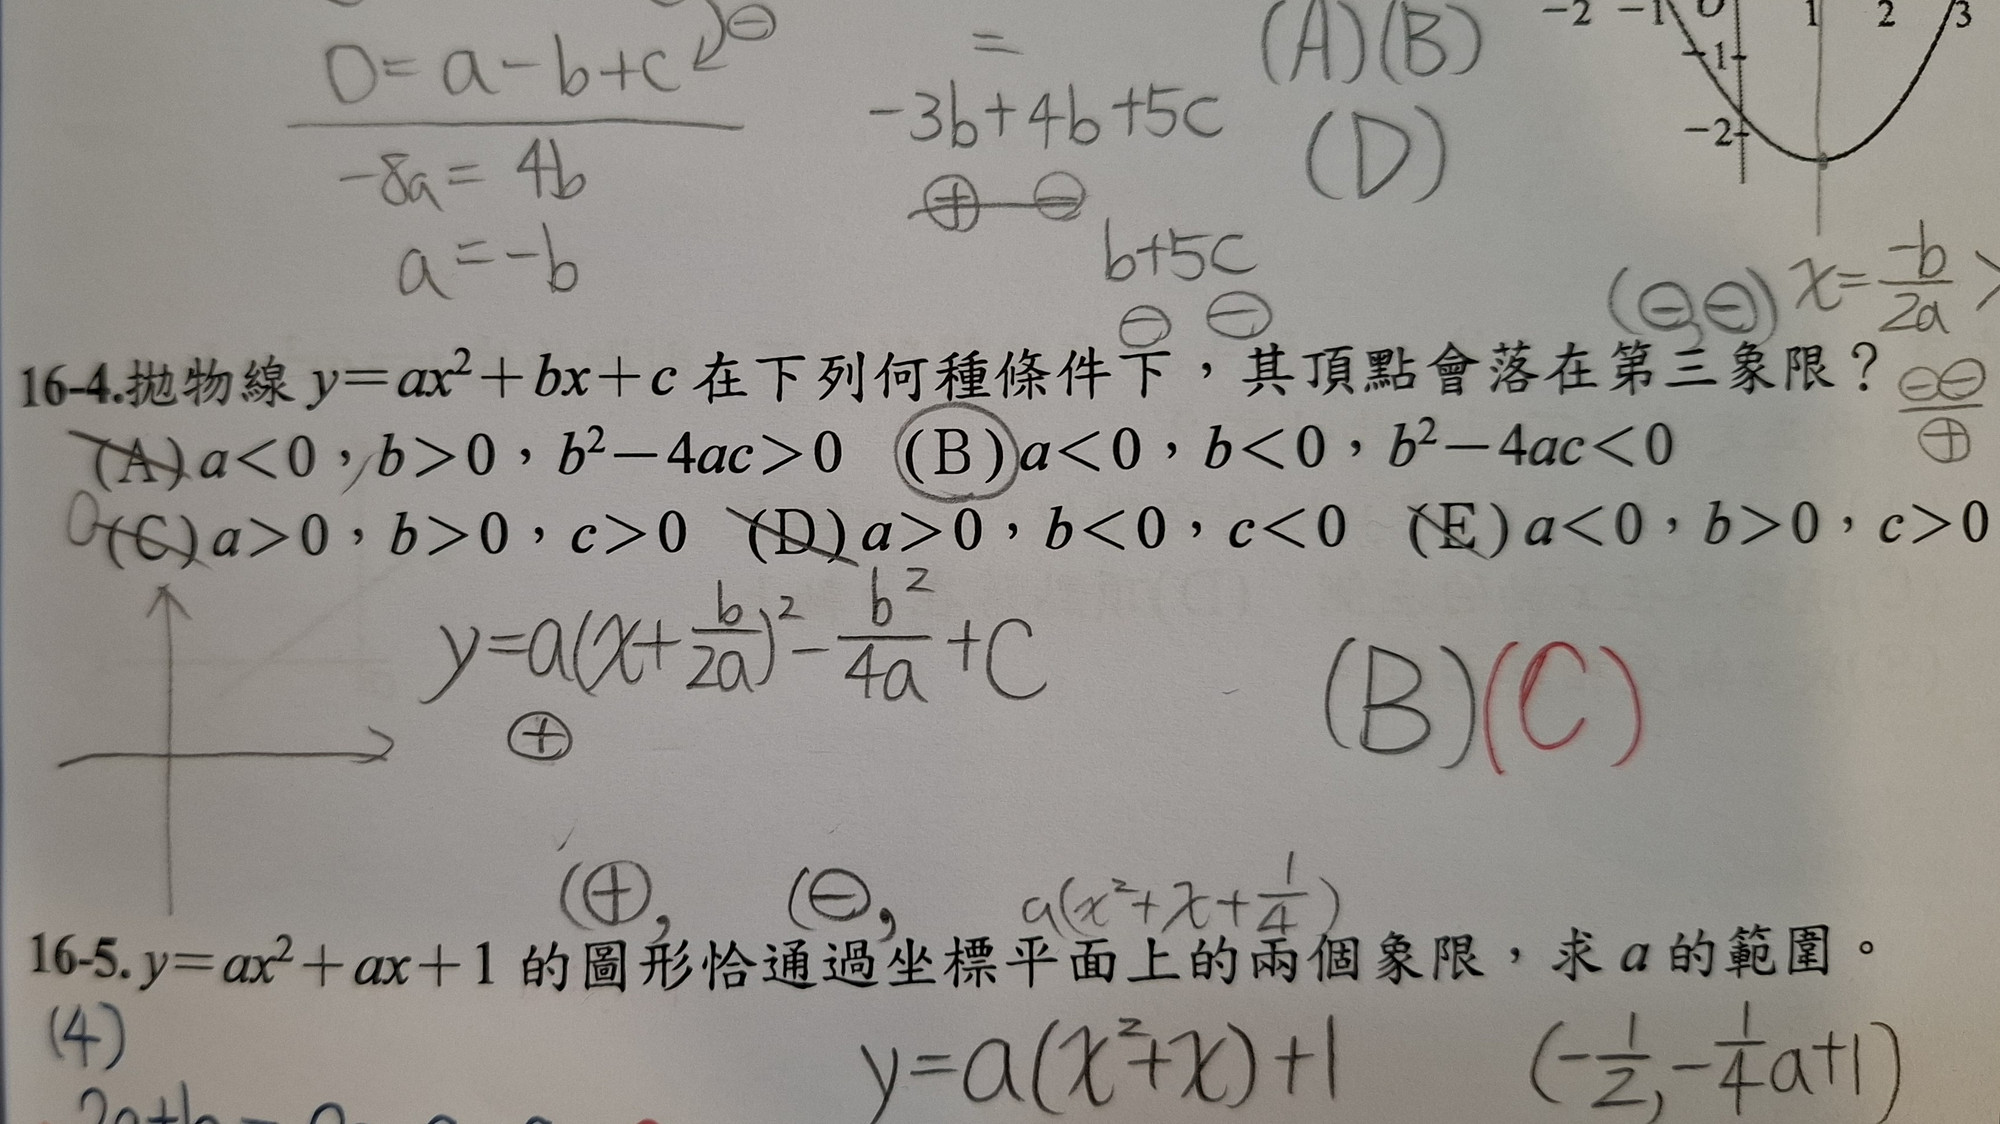 0=a-b+c ⊖
-8a=4b
a=-b
=
-3b+4b+5c
⊕ ⊖
b+5c
⊖ ⊖
(A)(B)
(D)
-2 -1 0 1 2 3
-1
-2
(⊖,⊖) x=-b/2a >
⊖⊖/⊕
16-4.拋物線 y=ax²+bx+c 在下列何種條件下，其頂點會落在第三象限？
(A) a<0，b>0，b²-4ac>0 (B) a<0，b<0，b²-4ac<0
(C) a>0，b>0，c>0 (D) a>0，b<0，c<0 (E) a<0，b>0，c>0
y=a(x+b/2a)²-b²/4a+c
⊕
(B)(C)
(⊕, (⊖, a(x²+x+1/4)
16-5. y=ax²+ax+1 的圖形恰通過坐標平面上的兩個象限，求 a 的範圍。
(4)
y=a(x²+x)+1 (-1/2,-1/4a+1)